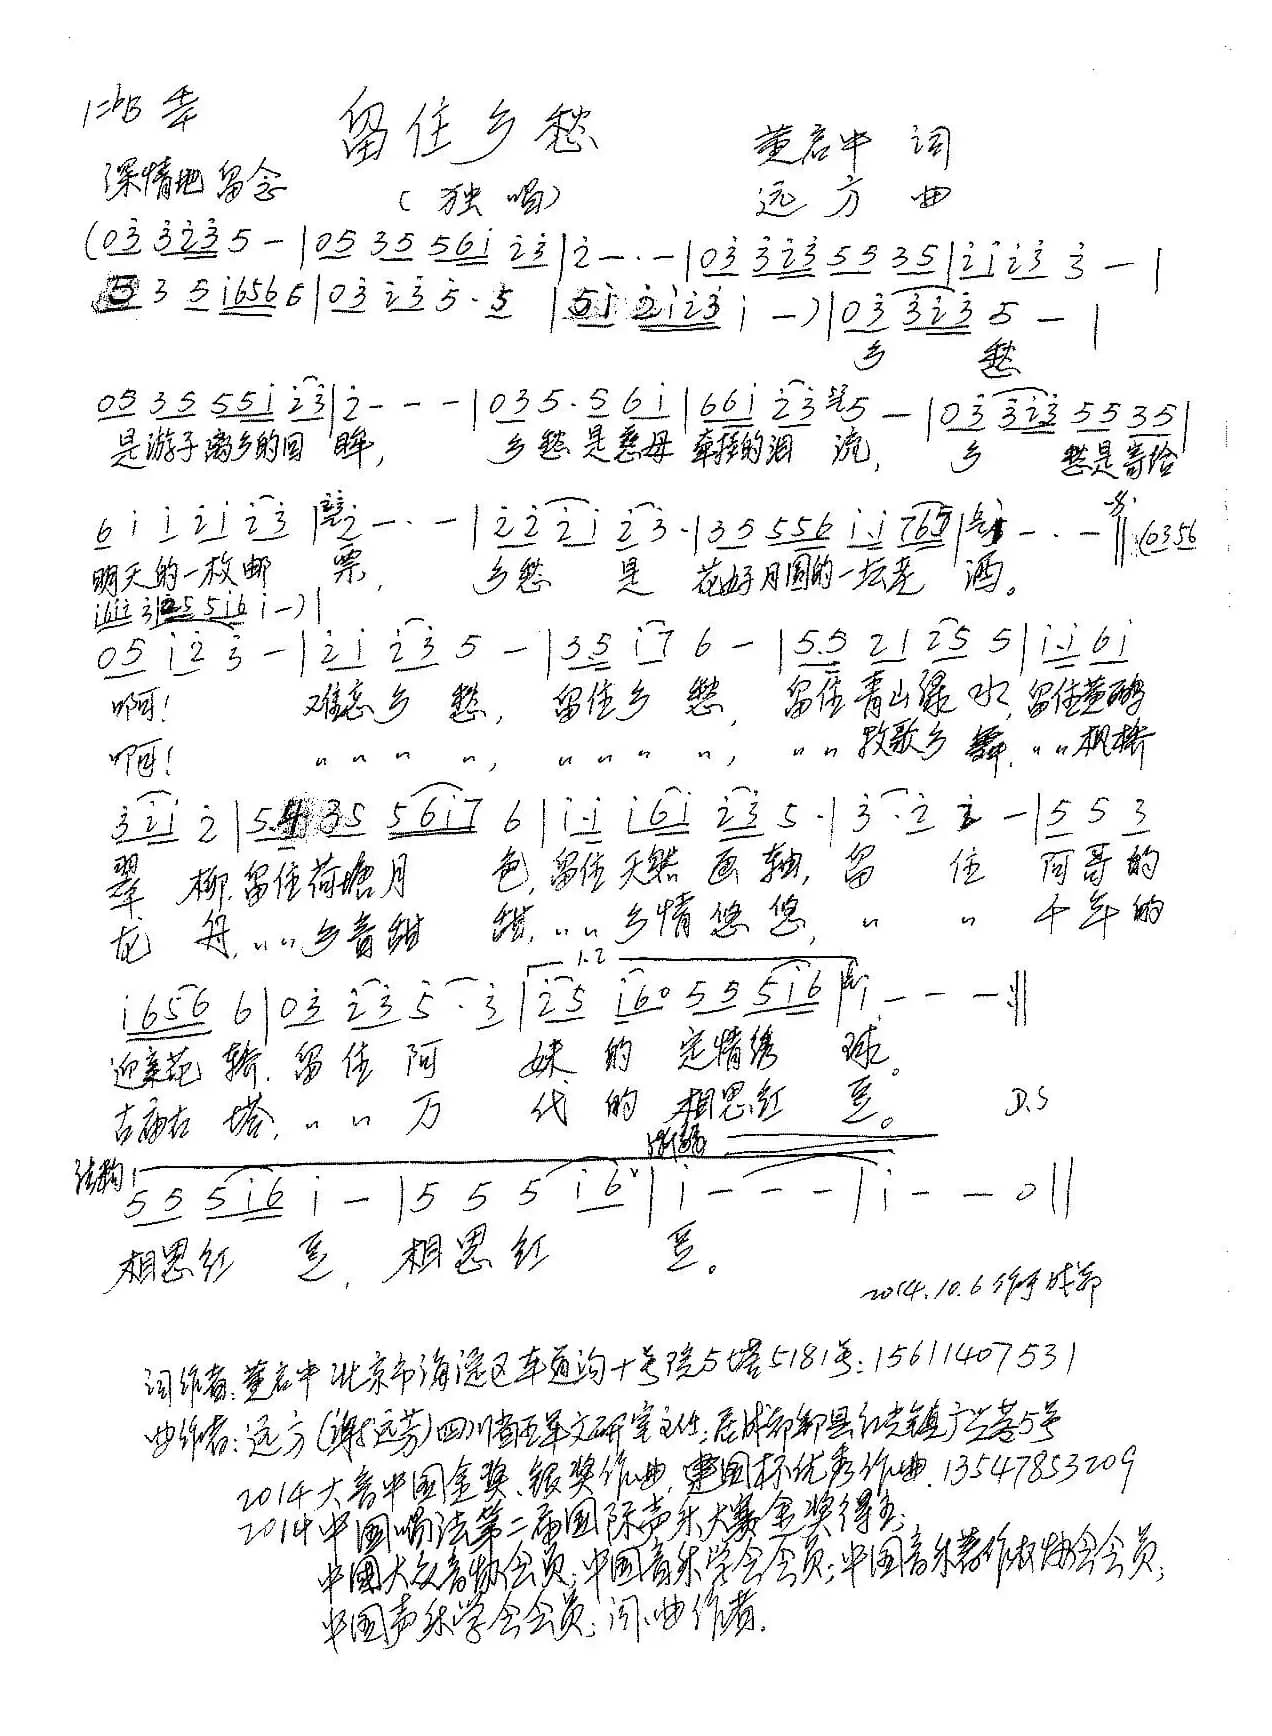 1=♭B 4/4
留住乡愁
董启中 词
深情地 留念
(独唱)
远方 曲
(03 3235 - | 05 35 561 23 | 2 - · - | 03 323 55 35 | 2123 3 - |
5 3 5 1656 6 | 03 23 5 · 5 | 51 2123 1 - ) | 03 323 5 - |
乡 愁
05 35 551 23 | 2 - - - | 035 · 5 61 | 661 23 5 - | 03 323 55 35 |
是游子离乡的回 眸, 乡愁是慈母 牵挂的泪 流, 乡 愁是寄给
6 1 1 21 23 | 2 - · - | 22 21 23 · | 35 556 1·1 765 | - · - || (6356
明天的一枚邮 票, 乡愁 是 花好月圆的一坛老 酒。
05 12 3 - | 21 23 5 - | 3·5 17 6 - | 5·5 21 25 5 | 1·1 61
啊! 难忘乡 愁, 留住乡 愁, 留住青山绿 水, 留住黄
啊! 〃 〃 〃 〃, 〃 〃 〃 〃, 〃 〃 牧歌乡 〃 〃 枫桥
3 21 2 | 5·4 35 5617 6 | 1·1 161 23 5 · | 3 · 2 2 - | 5 5 3
翠 柳, 留住荷塘月 色, 留住天然 画 轴, 留 住 阿哥的
龙 舟, 〃 〃 乡音甜 甜, 〃 〃 乡情悠 悠, 〃 〃 千年的
1.2
1656 6 | 03 23 5 · 3 | 25 160 55 516 | 1 - - - :||
迎亲花 轿, 留住 阿 妹 的 定情绣 球。
古庙古 塔, 〃 〃 万 代 的 相思红 豆。 D.S
渐慢
结构
55 516 1 - | 5 5 5 16 | 1 - - - | 1 - - 0 ||
相思红 豆, 相思红 豆。
2014.10.6 作于成都
词作者: 董启中 北京市海淀区车道沟十号院5塔5181号: 15611407531
曲作者: 远方(谢远芳)四川省文研室主任; 居成都郫县红光镇广兰巷5号
2014大音中国金奖、银奖作曲, 中国杯优秀作曲. 13547853209
2014中国唱法第二届国际声乐大赛金奖得主;
中國大众音协会员; 中国音乐学会会员; 中国音乐著作权协会会员;
中国声乐学会会员; 词、曲作者.